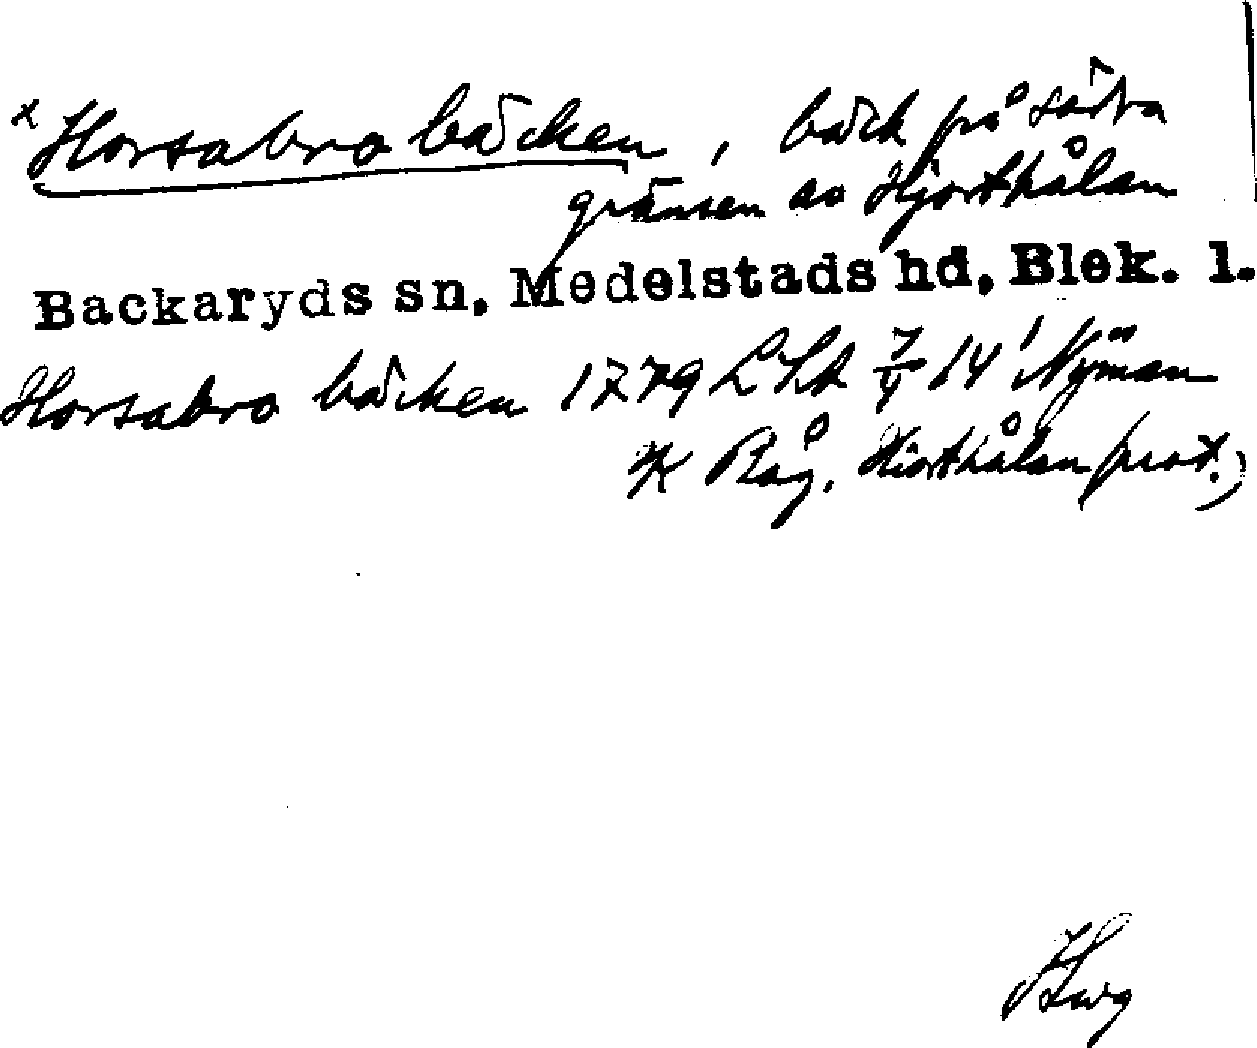 x Horsabro bäcken, bäck på södra
gränsen av Hjorthålan
Backaryds sn, Medelstads hd, Blek. l.
Horsabro bäcken 1779 LSA 14' Nyman
K Rå, Hiorthålan prot.)